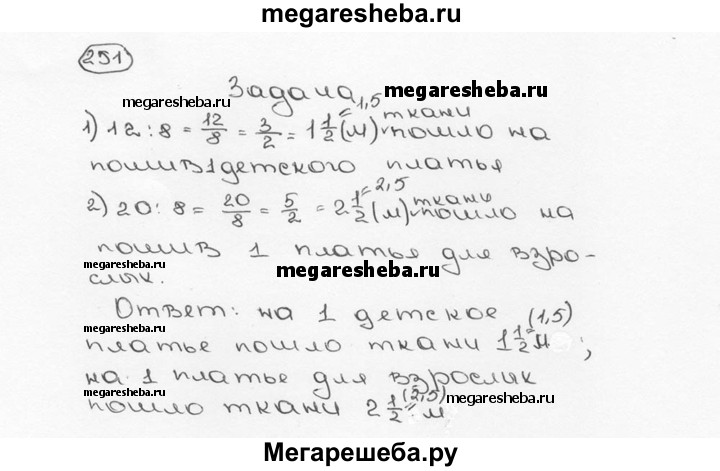 megaresheba.ru
251
Задача
megaresheba.ru
megaresheba.ru
1) 12 : 8 = 12/8 = 3/2 = 1 1/2 = 1,5 (м) ткани пошло на
пошив 1 детского платья
megaresheba.ru
megaresheba.ru
2) 20 : 8 = 20/8 = 5/2 = 2 1/2 = 2,5 (м) ткани пошло на
пошив 1 платья для взро-
megaresheba.ru
megaresheba.ru
слых.
Ответ: на 1 детское
megaresheba.ru
megaresheba.ru
платье пошло ткани 1 1/2 (1,5) м;
на 1 платье для взрослых
megaresheba.ru
megaresheba.ru
пошло ткани 2 1/2 (2,5) м
Мегарешеба.ру